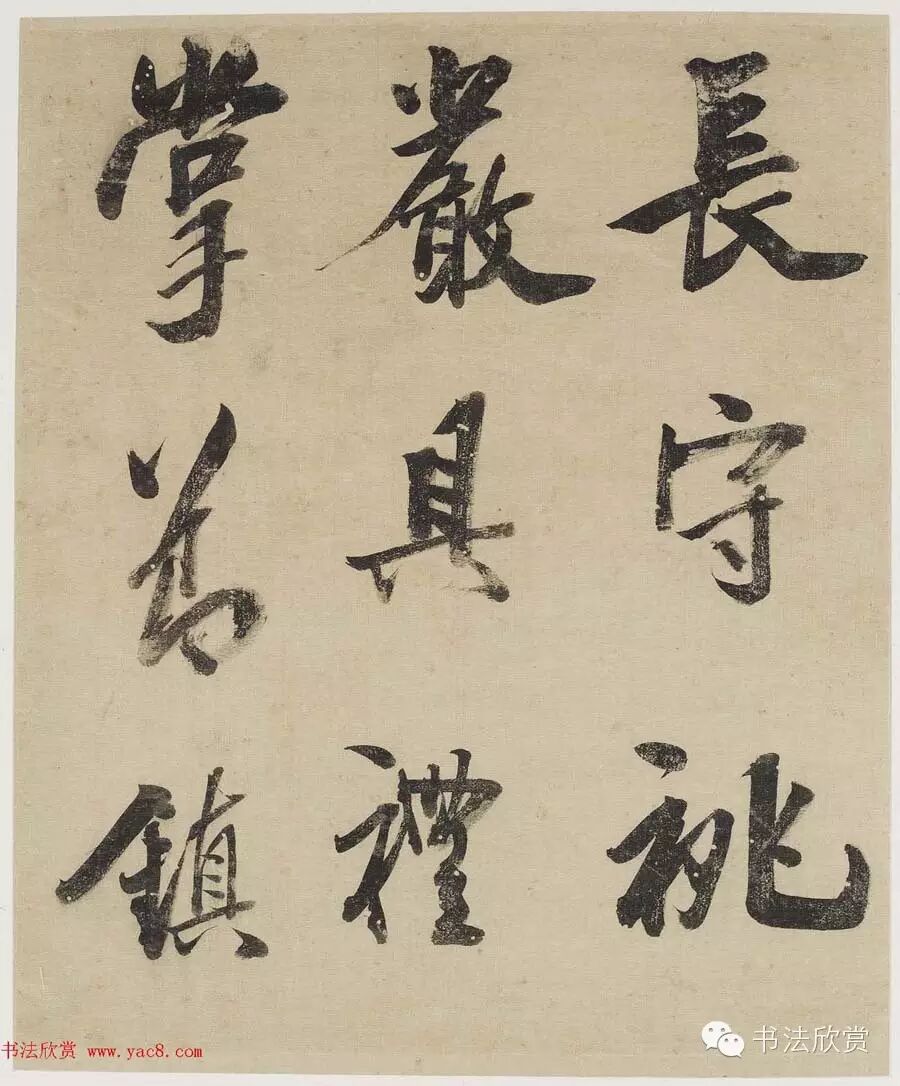 長守祧
嚴具禮
掌鎮
書法欣赏 www.yac8.com
书法欣赏